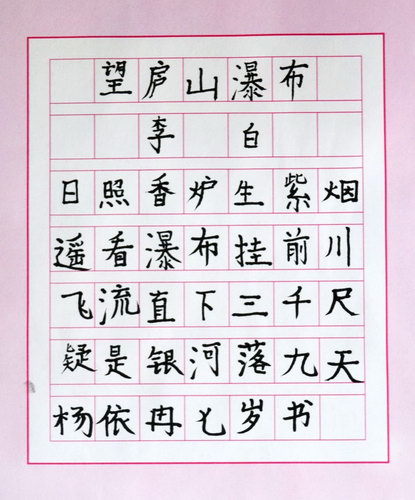 望庐山瀑布
李白
日照香炉生紫烟
遥看瀑布挂前川
飞流直下三千尺
疑是银河落九天
杨依冉七岁书